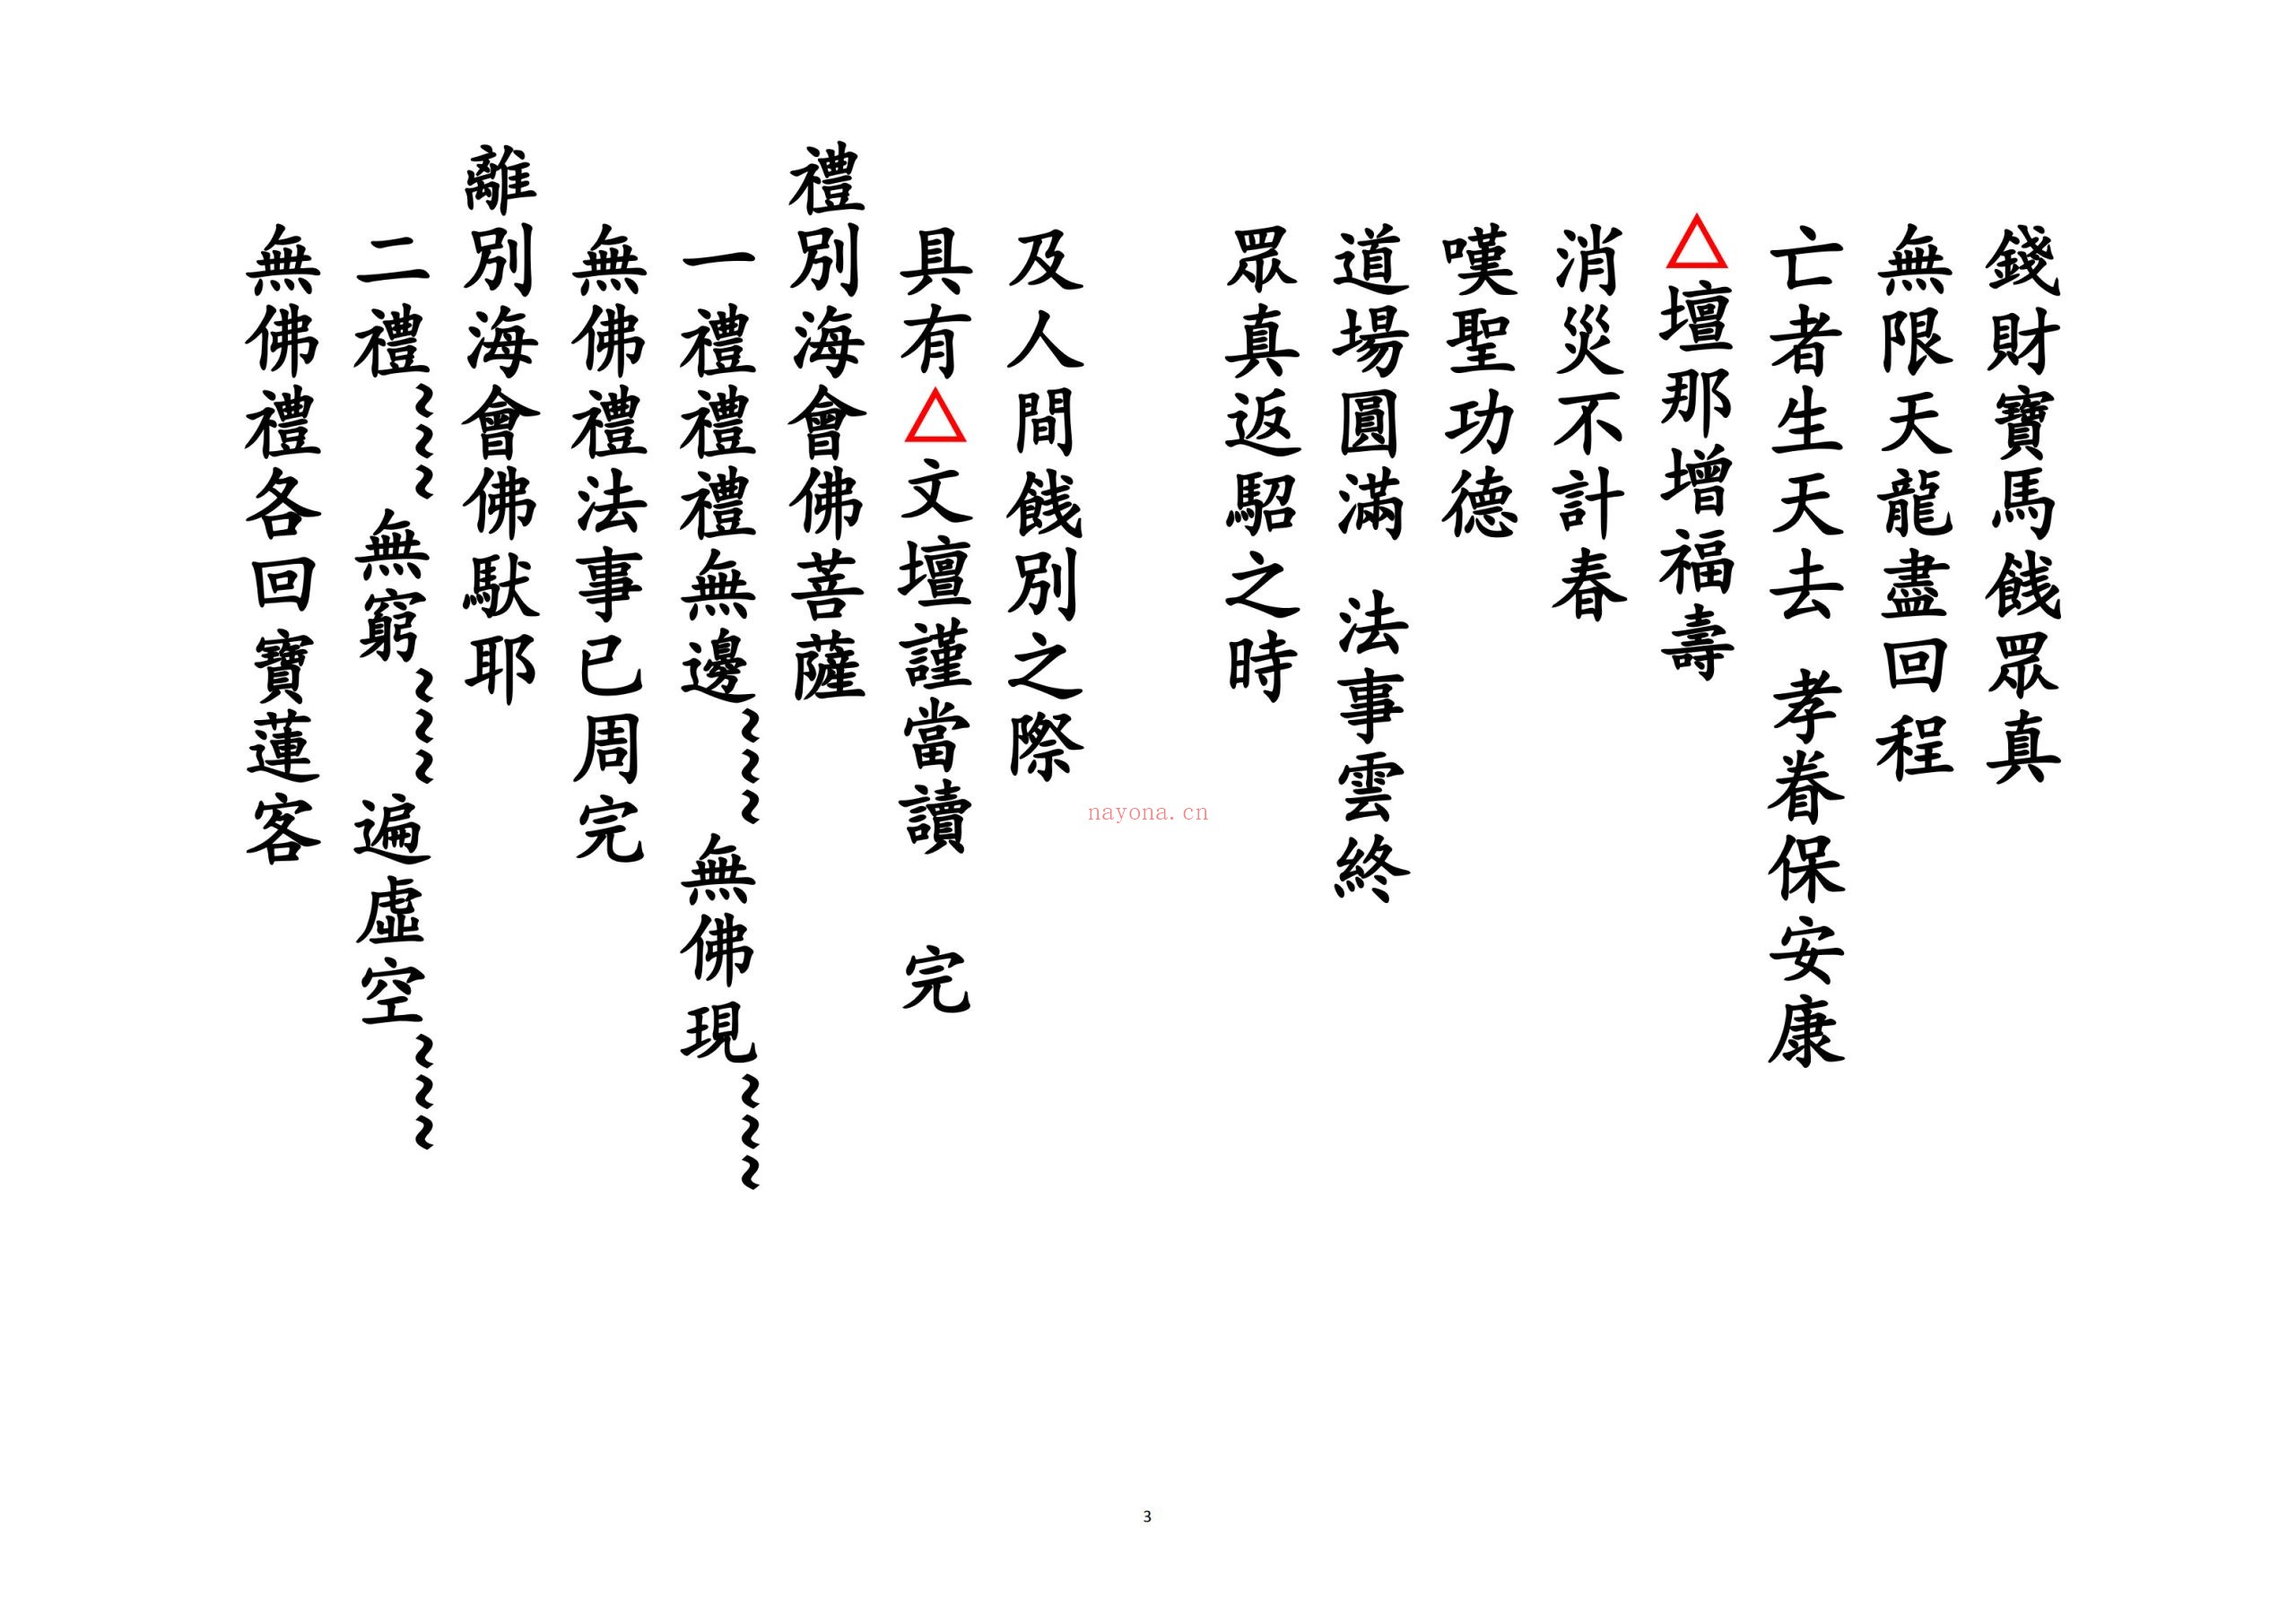 錢財寶馬餞眾真
無限天龍盡回程
亡者生天去　孝眷保安康
△壇那增福壽
消災不計春
嘆聖功德
道場圓滿　法事雲終
眾真返駋之時
及人間餞別之際
具有△文壇謹當讀　完
禮別海會佛菩薩
一禮禮禮無邊~~~無佛現~~~
無佛禮法事已周完
離別海會佛馱耶
二禮~~~無窮~~~遍虛空~~~
無佛禮各回寶蓮客
nayona.cn
3